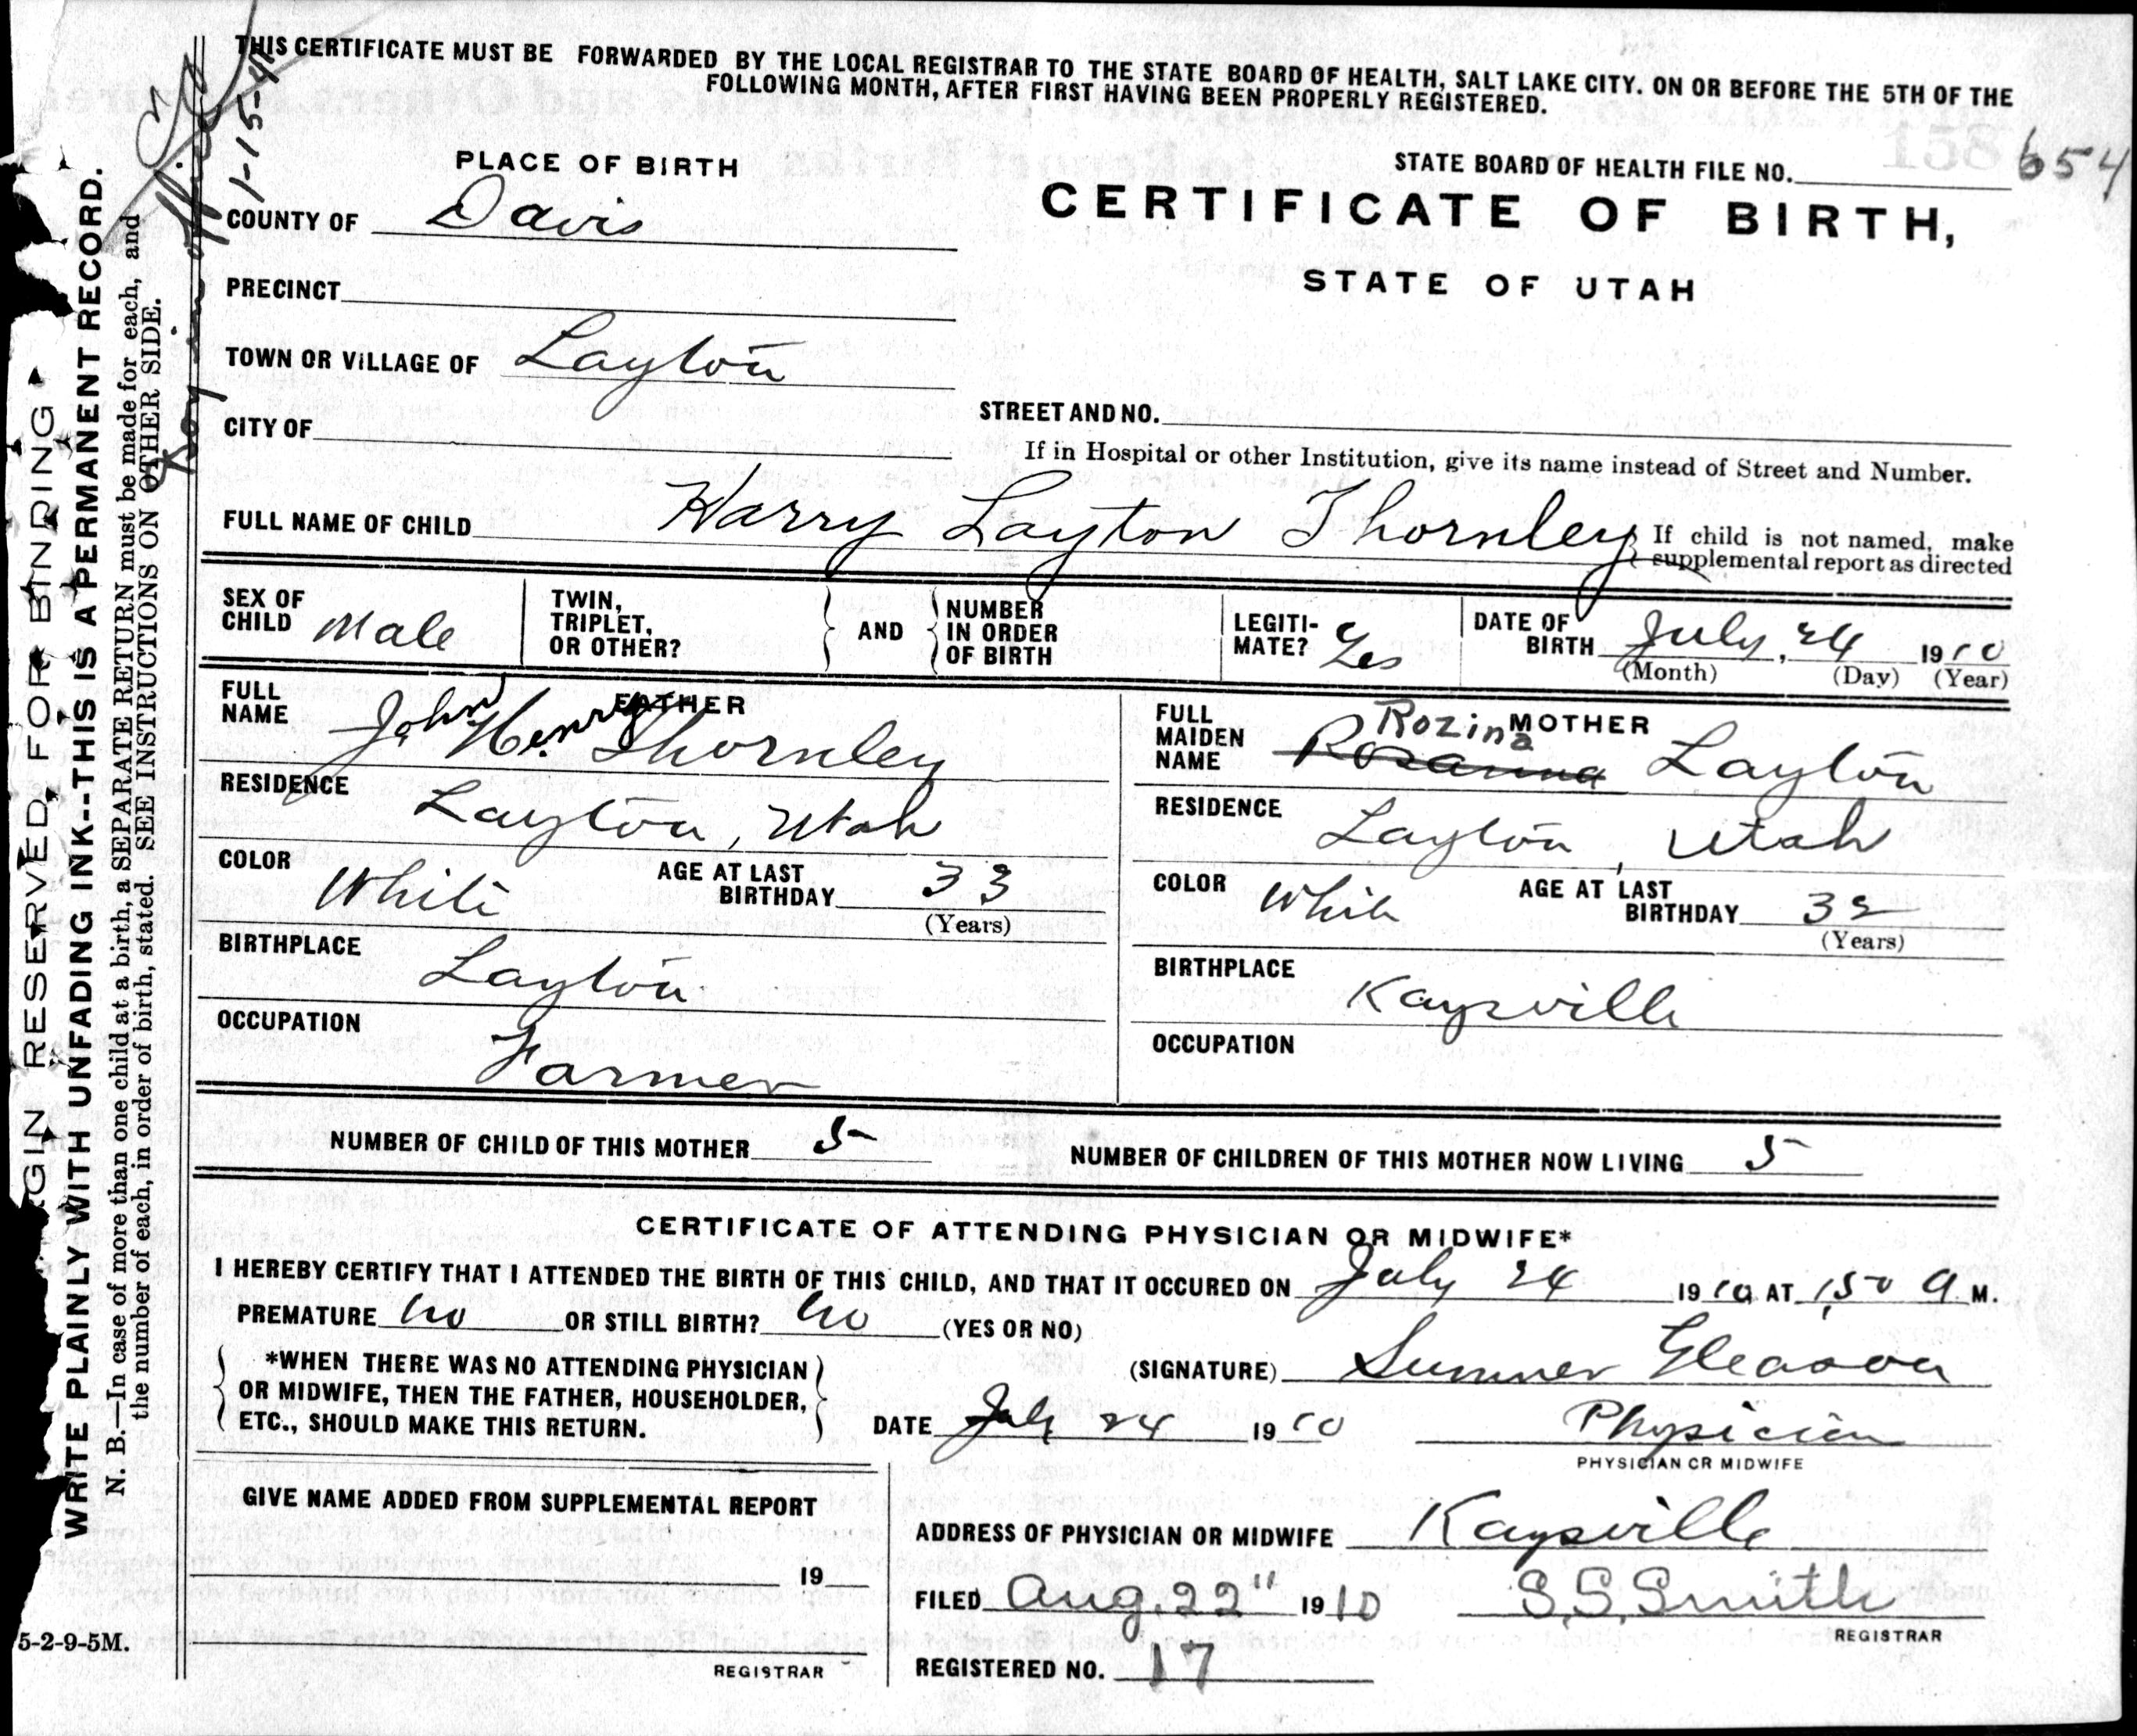 THIS CERTIFICATE MUST BE FORWARDED BY THE LOCAL REGISTRAR TO THE STATE BOARD OF HEALTH, SALT LAKE CITY. ON OR BEFORE THE 5TH OF THE
FOLLOWING MONTH, AFTER FIRST HAVING BEEN PROPERLY REGISTERED.
1-15-41
PLACE OF BIRTH
STATE BOARD OF HEALTH FILE NO. 654
158
COUNTY OF Davis
CERTIFICATE OF BIRTH,
STATE OF UTAH
PRECINCT
TOWN OR VILLAGE OF Layton
STREET AND NO.
CITY OF
If in Hospital or other Institution, give its name instead of Street and Number.
FULL NAME OF CHILD Harry Layton Thornley
If child is not named, make
supplemental report as directed
SEX OF CHILD Male
TWIN, TRIPLET, OR OTHER?
AND
NUMBER IN ORDER OF BIRTH
LEGITI-MATE? Yes
DATE OF BIRTH July, 24 1910
(Month) (Day) (Year)
FATHER
FULL NAME John Henry Thornley
RESIDENCE Layton, Utah
COLOR White AGE AT LAST BIRTHDAY 33
(Years)
BIRTHPLACE Layton
OCCUPATION Farmer
MOTHER
FULL MAIDEN NAME Rozina Rozanna Layton
RESIDENCE Layton, Utah
COLOR White AGE AT LAST BIRTHDAY 32
(Years)
BIRTHPLACE Kaysville
OCCUPATION
NUMBER OF CHILD OF THIS MOTHER 5 NUMBER OF CHILDREN OF THIS MOTHER NOW LIVING 5
CERTIFICATE OF ATTENDING PHYSICIAN OR MIDWIFE*
I HEREBY CERTIFY THAT I ATTENDED THE BIRTH OF THIS CHILD, AND THAT IT OCCURED ON July 24 1910 AT 1,50 A M.
PREMATURE no OR STILL BIRTH? no (YES OR NO)
*WHEN THERE WAS NO ATTENDING PHYSICIAN
OR MIDWIFE, THEN THE FATHER, HOUSEHOLDER,
ETC., SHOULD MAKE THIS RETURN.
(SIGNATURE) Sumner Gleason
DATE July 24 1910 Physician
PHYSICIAN OR MIDWIFE
GIVE NAME ADDED FROM SUPPLEMENTAL REPORT
19
REGISTRAR
ADDRESS OF PHYSICIAN OR MIDWIFE Kaysville
FILED Aug. 22" 1910 S. S. Smith
REGISTRAR
REGISTERED NO. 17
5-2-9-5M.
RGIN RESERVED, FOR BINDING
WRITE PLAINLY WITH UNFADING INK--THIS IS A PERMANENT RECORD.
N. B.—In case of more than one child at a birth, a SEPARATE RETURN must be made for each, and
the number of each, in order of birth, stated. SEE INSTRUCTIONS ON OTHER SIDE.